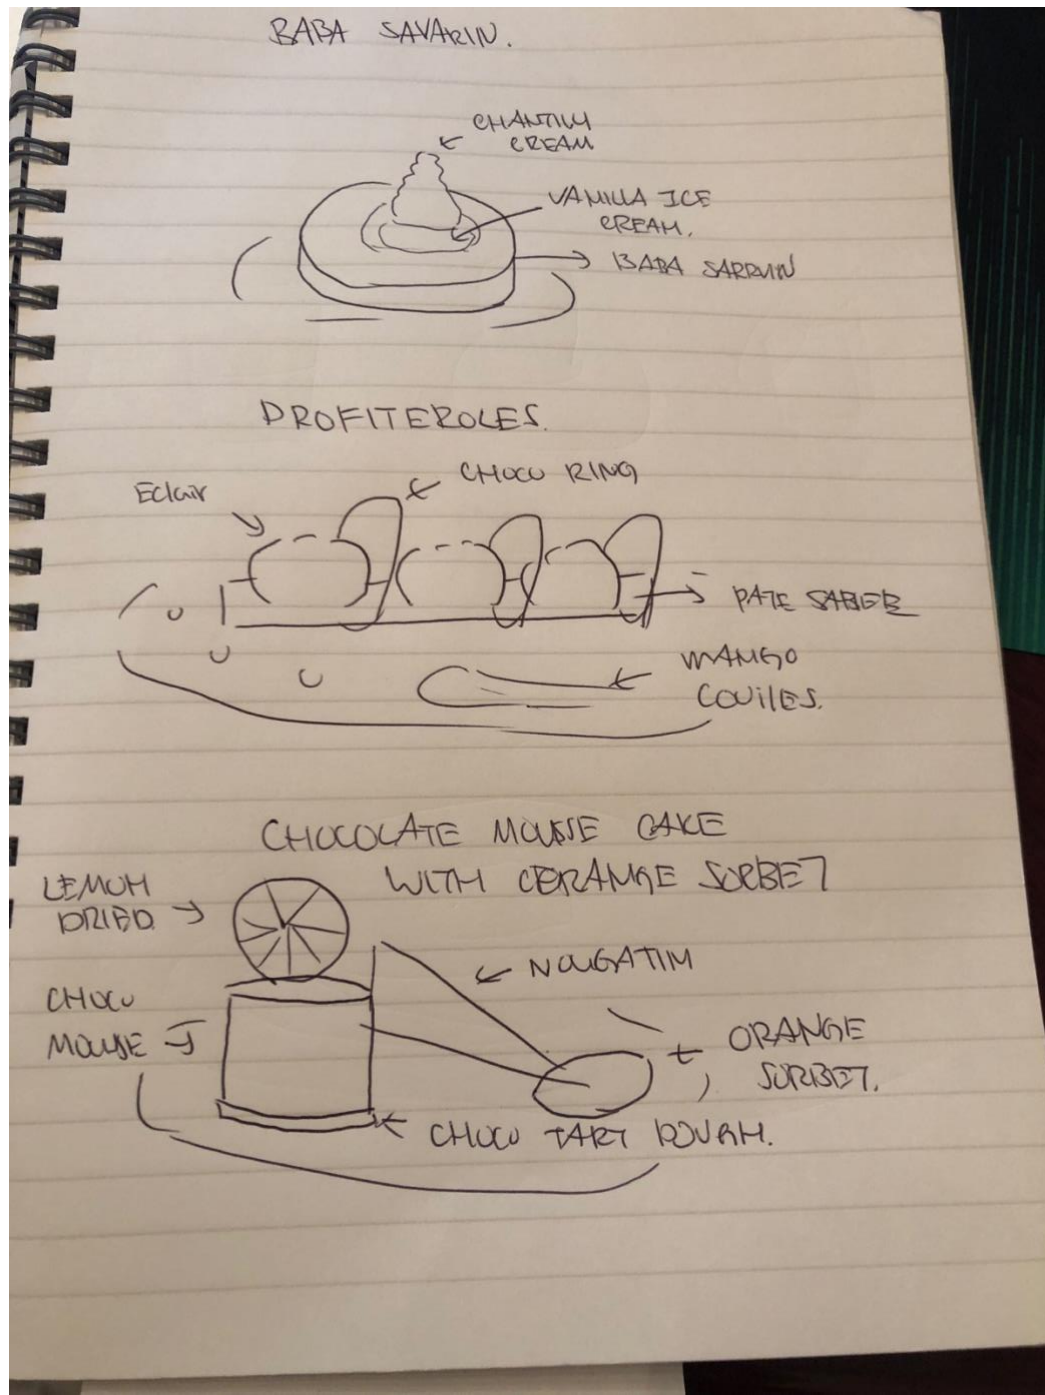 BABA SAVARIN.
CHANTILLY
CREAM
VANILLA ICE
CREAM.
BABA SARRVIN
PROFITEROLES.
CHOCO RING
Eclair
PATE SABLER
MANGO
COUILES.
CHOCOLATE MOUSSE CAKE
WITH ORANGE SORBET
LEMON
DRIED
NOUGATIM
CHOCO
MOUSE
ORANGE
SORBET.
CHOCO TART DOUGH.